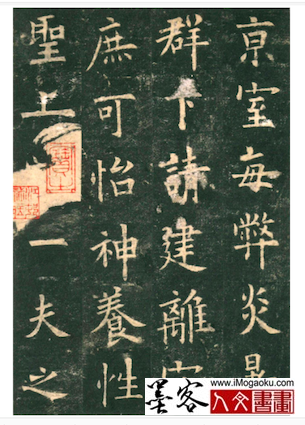 京室每弊炎景
群下請建離宮
庶可怡神養性
聖上一夫之
www.iMogaoku.com
墨客
人文書畫